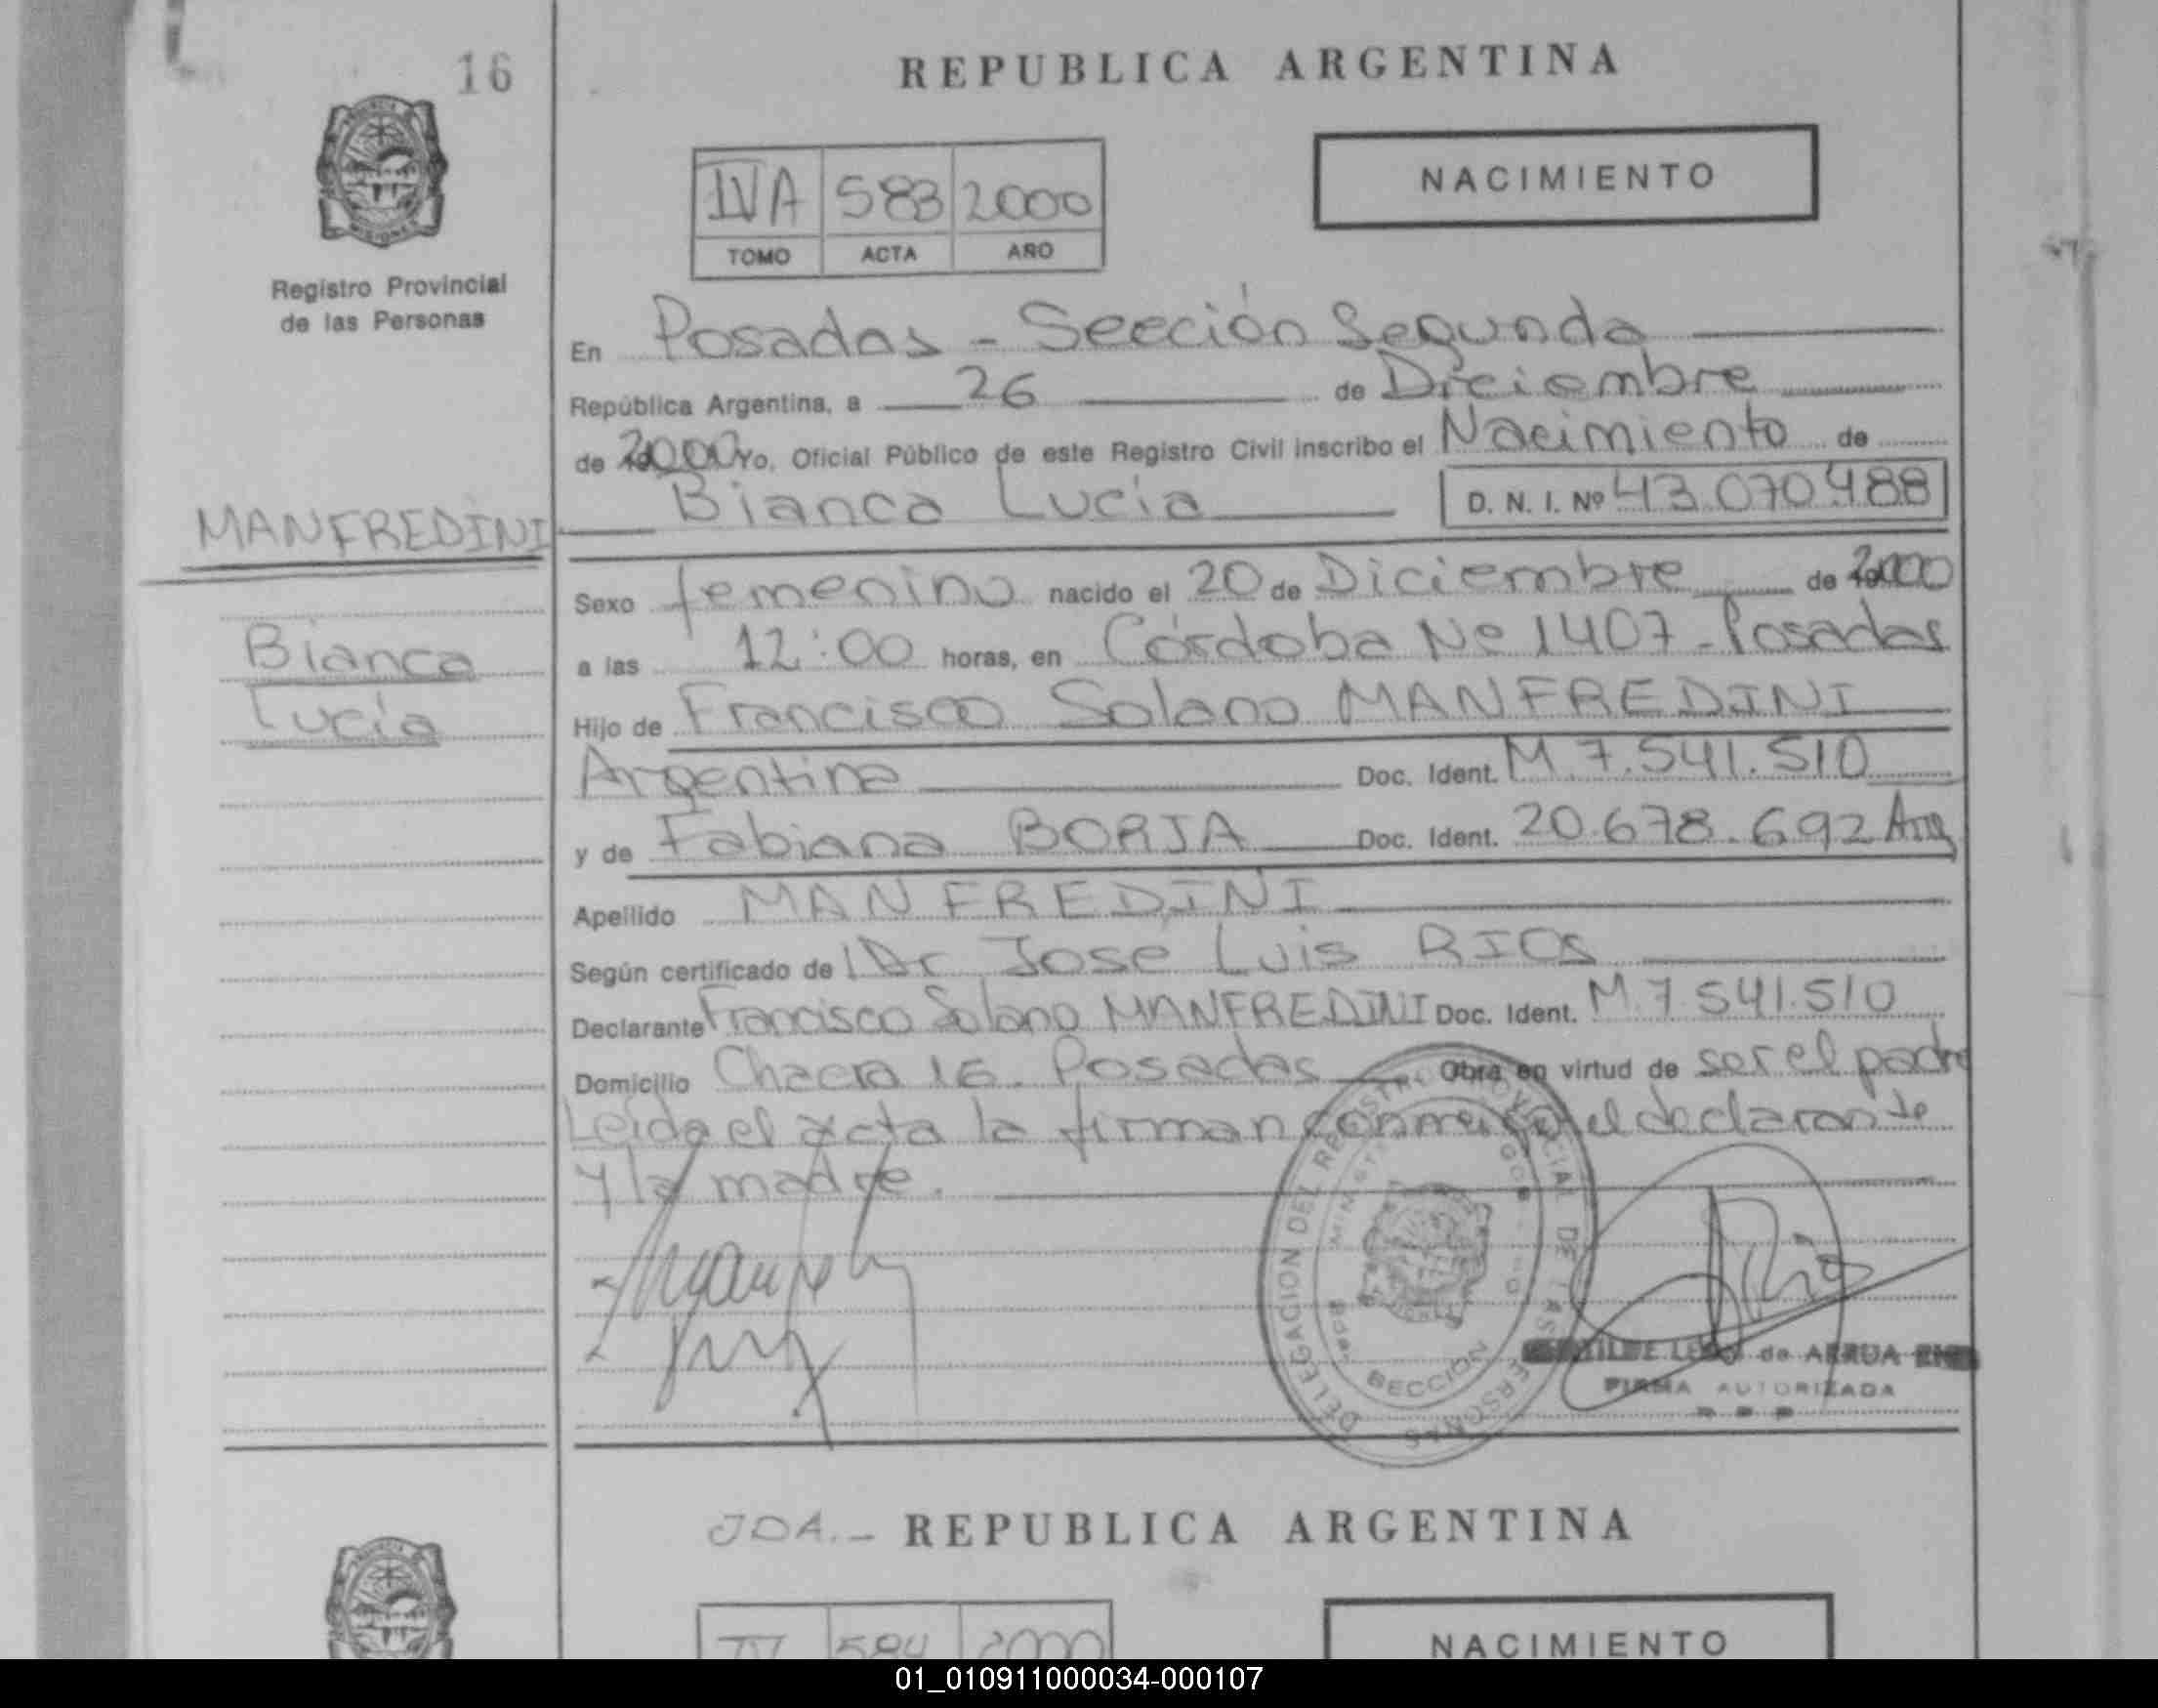 16
REPUBLICA ARGENTINA
IVA 583 2000
TOMO ACTA AÑO
NACIMIENTO
Registro Provincial
de las Personas
En Posadas - Sección Segunda
República Argentina, a 26 de Diciembre
de 2000 Yo, Oficial Público de este Registro Civil inscribo el Nacimiento de
Bianca Lucía D. N. I. Nº 43.070.988
MANFREDINI
Bianca
Lucía
Sexo femenino nacido el 20 de Diciembre de 2000
a las 12:00 horas, en Córdoba Nº 1407 - Posadas
Hijo de Francisco Solano MANFREDINI
Argentina Doc. Ident. M 7.541.510
y de Fabiana BORJA Doc. Ident. 20.678.692 Arg
Apellido MANFREDINI
Según certificado de Dr Jose Luis RIOS
Declarante Francisco Solano MANFREDINI Doc. Ident. M.7.541.510
Domicilio Chacra 16. Posadas Obra en virtud de ser el padre
Leída el acta la firman conmigo el declarante
y la madre.
DELEGACION DEL REGISTRO PROVINCIAL DE LAS PERSONAS
SECCION
de ARRUA
FIRMA AUTORIZADA
JDA.- REPUBLICA ARGENTINA
584 2000
NACIMIENTO
01_010911000034-000107